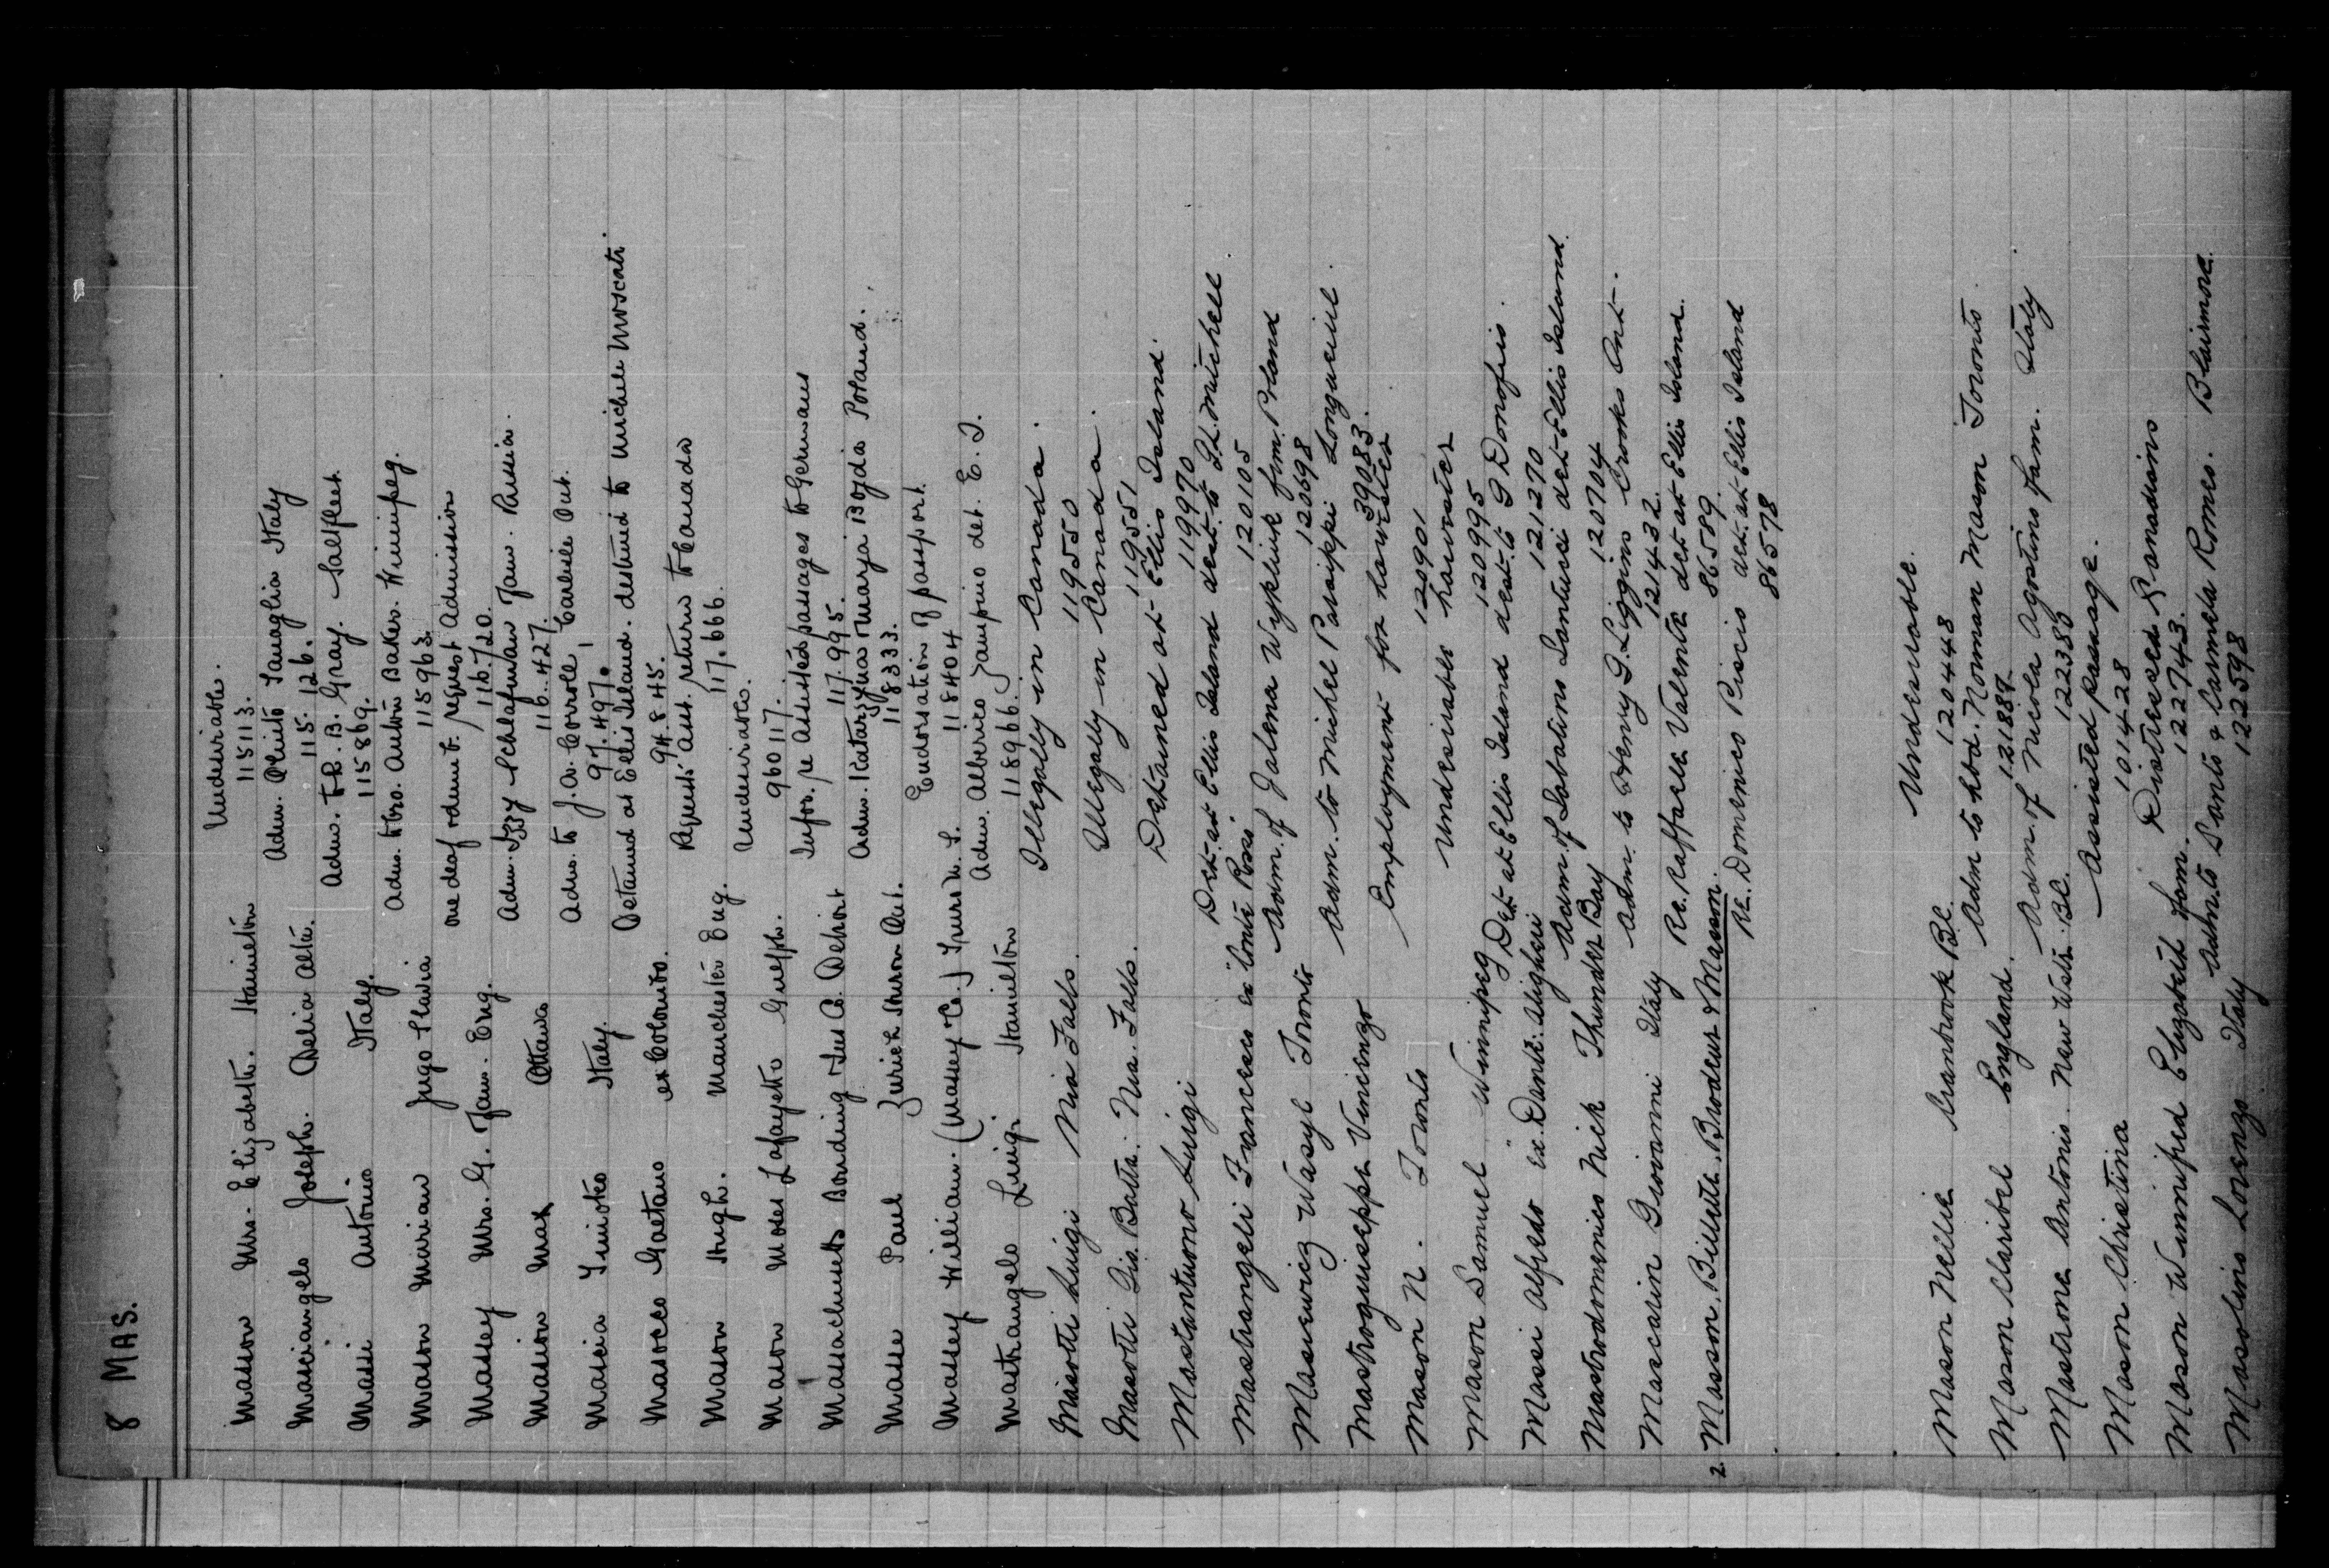 8 MAS.
Undesirable.
Masson Mrs. Elizabeth. Hamilton 115113.
Adm. Italy
Masciangelo Joseph. Delia Alta. 115.126.
Adm. B. Gray. Saltfleet
Massi Antonio Italy. 115869.
Adm. Bro. Anton Baker. Winnipeg.
Mason Marian Jugo Slavia 115963.
one deaf request Admission
Massey Mrs. G. Fam. Eng. 116.720.
Adm. Izzy Schlafman Fam. Russia.
Massion Max Ottawa 116.427.
Adm. to J.A. Corrole, Carlisle Ont.
Mascia Italy. 97.497.
Detained at Ellis Island. destined to Michele Moscati.
Masocco Gaetano ex Colombo. 94.845.
Request Aut. return to Canada
Mason Hugh. Manchester Eng. 117.666.
Undesirable.
Mason Moses Lafayette Guelph. 96017.
Infor. re Assisted passages to Germans
Massachusetts Bonding & Ins Co. Detroit 117.995.
Adm. Katarzyna & Marja Bojda Poland.
Masse Paul Zurich Huron Ont. 118333.
Endorsation of passport.
Massey William. (Massey Co.) Truro N.S. 118404
Adm. Alberico det. E. I.
Mastrangelo Luigi. Hamilton 118966.
Illegally in Canada.
Masotti Luigi Nia Falls 119550
Illegally in Canada.
Masotti Gio. Batta. Nia. Falls. 119551
Detained at Ellis Island.
Mastantuono Luigi 119970
Det. at Ellis Island dest. to Mitchell
Mastrangeli Francesco ex "Conte Rosso" 120105
Adm. of Jalena Wykliuk fm. Poland
Massiewicz Wasyl Toronto 120698
Adm. to Michel Patsippi Longueuil.
Mastroguiseppe Vincenzo 39083.
Employment for harvester
Mason N. Toronto 120901
Undesirable harvester
Mason Samuel Winnipeg 120995
Det. at Ellis Island dest. to G Donofrio.
Massi Alfredo ex. Dante Alighieri 121270
Adm. of Sabatino Santucci det. Ellis Island.
Mastrodomenico Nick Thunder Bay 120704
Adm. to Henry G. Liggins Crooks Ont.
Mascarin Giovanni Italy 121432.
Re. Raffaele Valente det. at Ellis Island.
2. Masson, Billette, Brodeur & Masson. 86589.
Re. Domenico Piscio det. at Ellis Island
86578
Undesirable.
Mason Nellie Cranbrook B.C. 120448
Adm to hbd. Norman Mason Toronto.
Mason Claribel England. 121887.
Adm. of Nicola Agostino fam. Italy
Mastrone Antonio. New West. B.C. 122380
Assisted passage.
Mason Christina 101428
Distressed Canadians
Mason Winnifred Elizabeth fam. 122743.
Adm. to Santo & Carmela Romeo. Blairmore.
Masolino Lorenzo Italy 122598